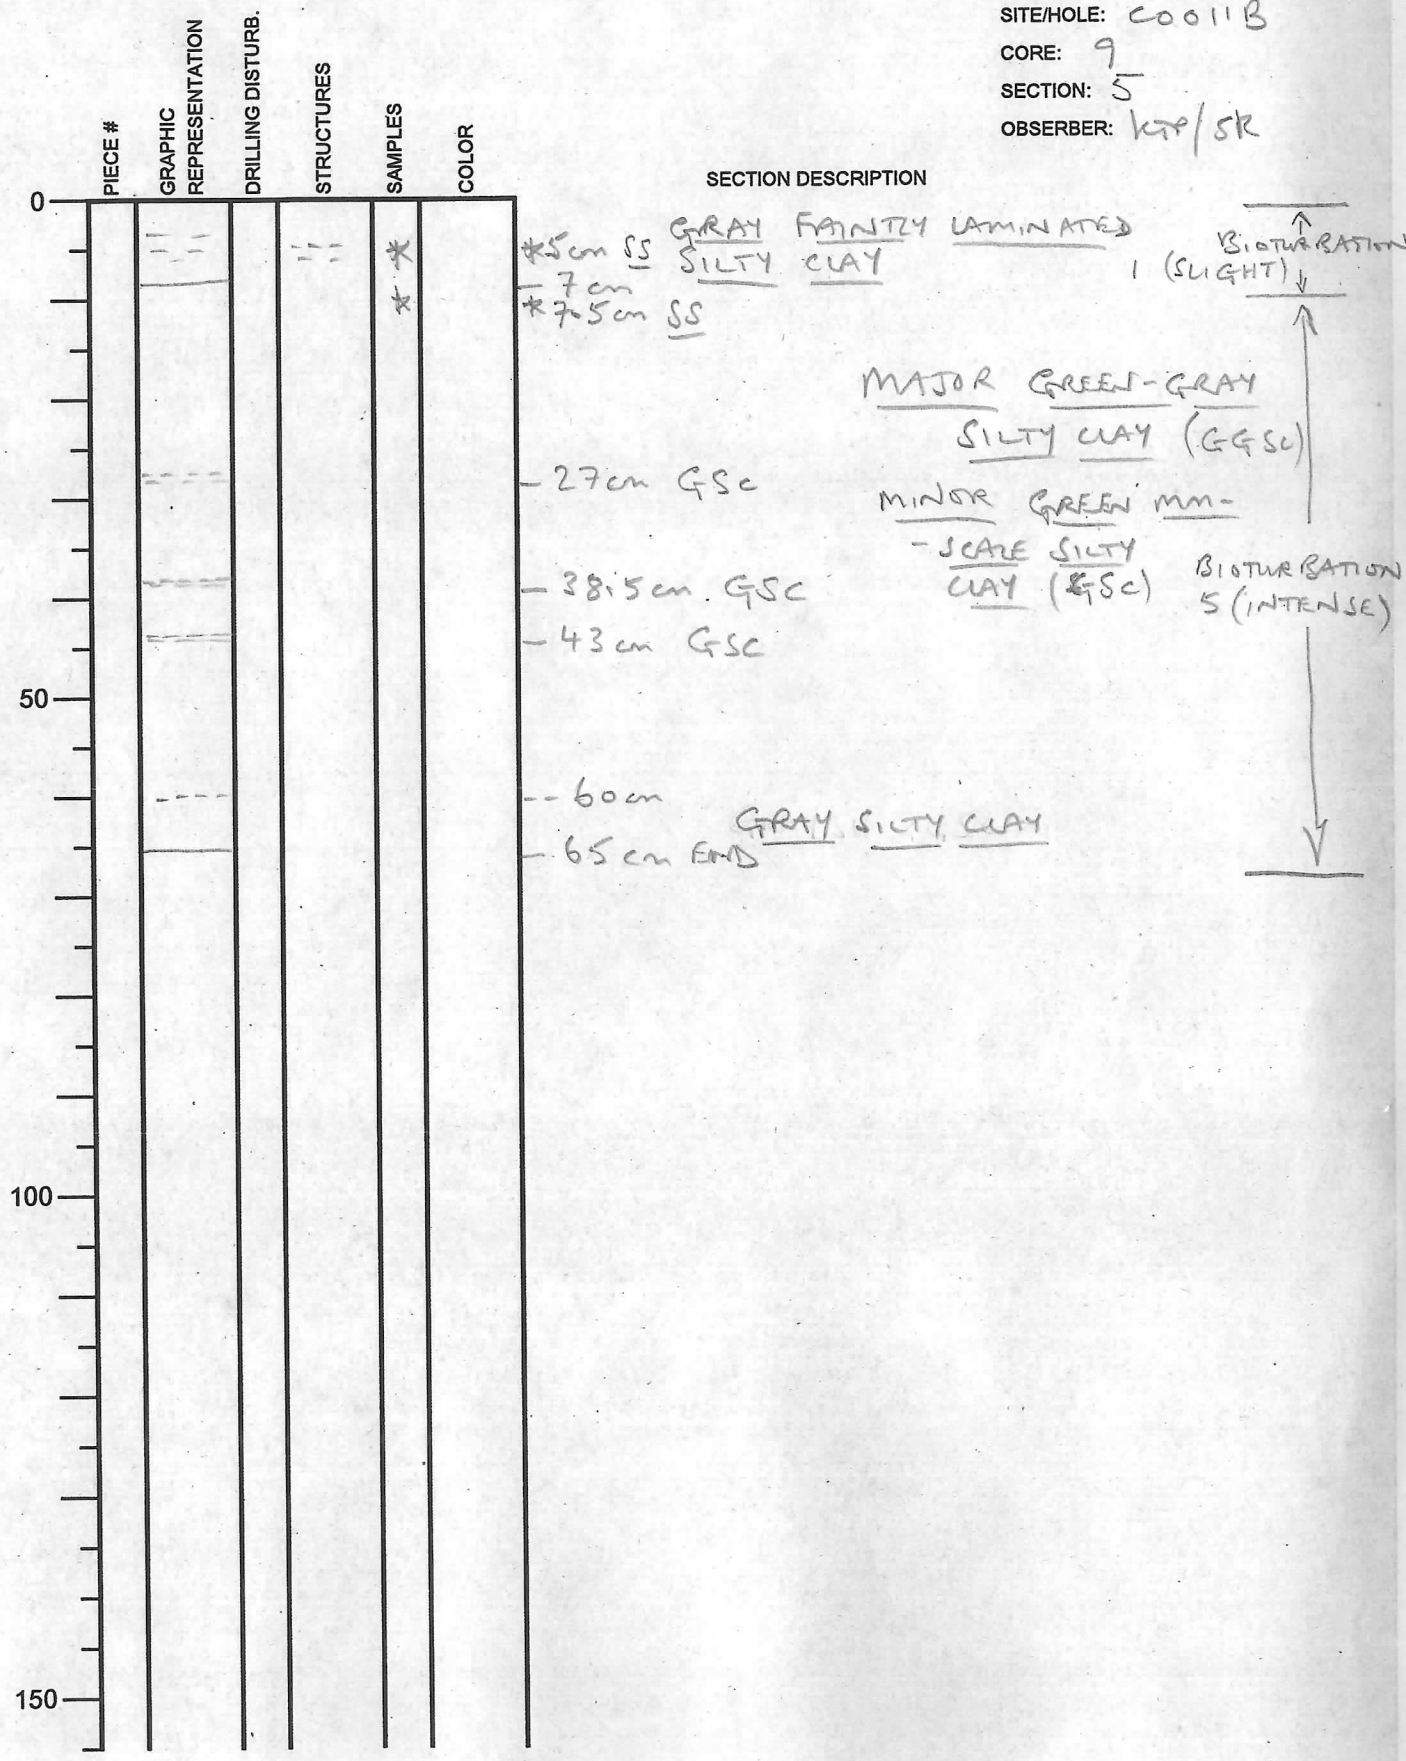 SITE/HOLE: C0011B
CORE: 9
SECTION: 5
OBSERBER: KTP/SR
PIECE #
GRAPHIC REPRESENTATION
DRILLING DISTURB.
STRUCTURES
SAMPLES
COLOR
SECTION DESCRIPTION
0
50
100
150
*5cm SS GRAY FAINTLY LAMINATED
SILTY CLAY
BIOTURBATION
1 (SLIGHT)
- 7cm
*7.5cm SS
MAJOR GREEN-GRAY
SILTY CLAY (GGSC)
- 27cm GSC
MINOR GREEN MM-
- SCALE SILTY
CLAY (GSC)
BIOTURBATION
5 (INTENSE)
- 38.5cm. GSC
- 43cm GSC
-- 60cm
GRAY SILTY CLAY
- 65cm END